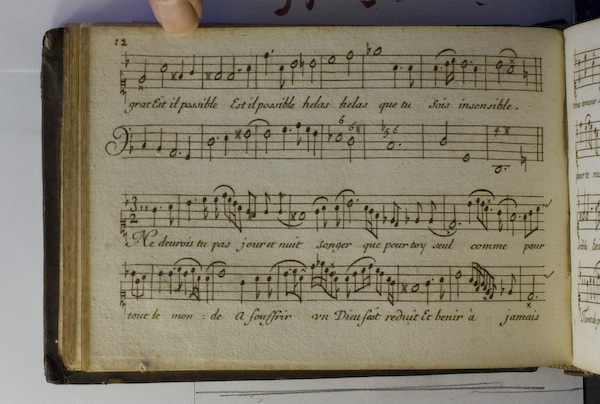 12
grat Est il possible Est il possible helas helas que tu sois insensible.
Ne devrois tu pas jour et nuit songer que pour toy seul comme pour
tout le mon : de A souffrir vn Dieu s'est reduit Et benir à jamais